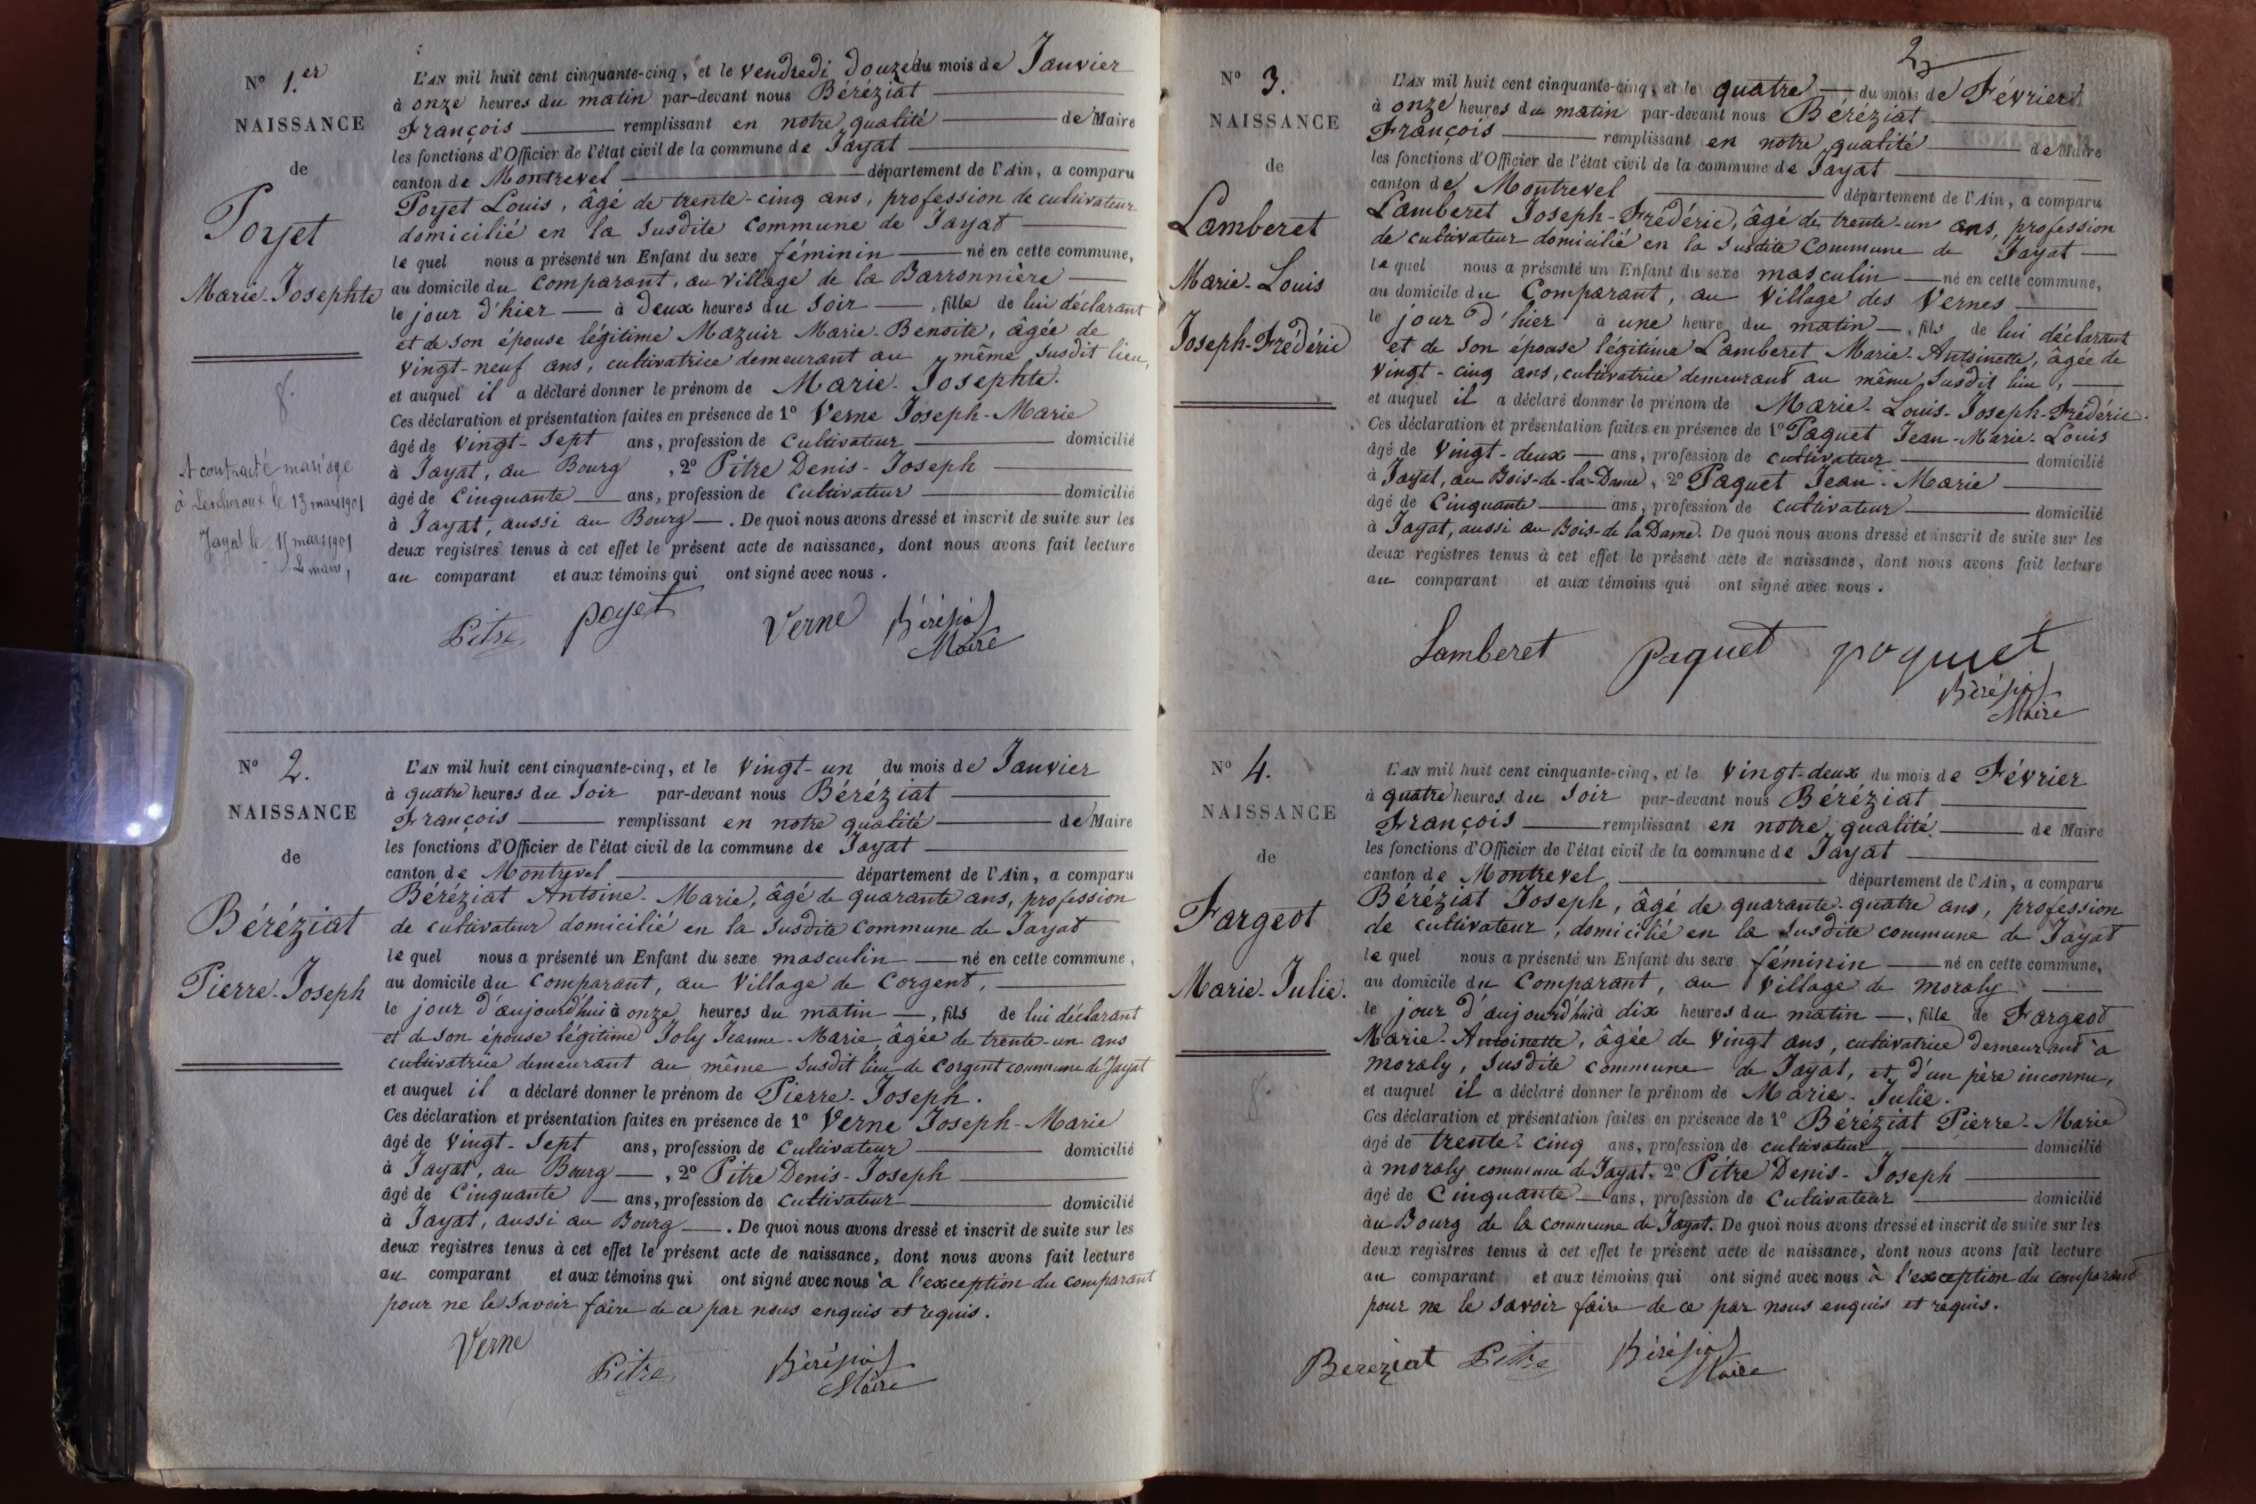 N° 1.er
NAISSANCE
de
Poyet
Marie-Josephte
A contracté mariage
à Lescheroux le 13 mars 1901
Jayat le 15 mars 1901
Le maire,
L'AN mil huit cent cinquante-cinq, et le vendredi douze du mois de Janvier
à onze heures du matin par-devant nous Béréziat
François remplissant en notre qualité de Maire
les fonctions d'Officier de l'état civil de la commune de Jayat
canton de Montrevel département de l'Ain, a comparu
Poyet Louis, âgé de trente-cinq ans, profession de cultivateur
domicilié en la susdite commune de Jayat
le quel nous a présenté un Enfant du sexe féminin né en cette commune,
au domicile du comparant, au village de la Barronnière
le jour d'hier à deux heures du soir, fille de lui déclarant
et de son épouse légitime Mazuir Marie-Benoite, âgée de
vingt-neuf ans, cultivatrice demeurant au même susdit lieu,
et auquel il a déclaré donner le prénom de Marie-Josephte.
Ces déclaration et présentation faites en présence de 1° Verne Joseph-Marie
âgé de vingt-sept ans, profession de cultivateur domicilié
à Jayat, au Bourg, 2° Pitre Denis-Joseph
âgé de cinquante ans, profession de cultivateur domicilié
à Jayat, aussi au Bourg. De quoi nous avons dressé et inscrit de suite sur les
deux registres tenus à cet effet le présent acte de naissance, dont nous avons fait lecture
au comparant et aux témoins qui ont signé avec nous.
Pitre poyet Verne Béréziat
Maire
N° 2.
NAISSANCE
de
Béréziat
Pierre-Joseph
L'AN mil huit cent cinquante-cinq, et le vingt-un du mois de Janvier
à quatre heures du soir par-devant nous Béréziat
François remplissant en notre qualité de Maire
les fonctions d'Officier de l'état civil de la commune de Jayat
canton de Montrevel département de l'Ain, a comparu
Béréziat Antoine-Marie, âgé de quarante ans, profession
de cultivateur domicilié en la susdite commune de Jayat
le quel nous a présenté un Enfant du sexe masculin né en cette commune,
au domicile du comparant, au village de Corgent,
le jour d'aujourd'hui à onze heures du matin, fils de lui déclarant
et de son épouse légitime Joly Jeanne-Marie âgée de trente-un ans
cultivatrice demeurant au même susdit lieu de Corgent commune de Jayat
et auquel il a déclaré donner le prénom de Pierre-Joseph.
Ces déclaration et présentation faites en présence de 1° Verne Joseph-Marie
âgé de vingt-sept ans, profession de cultivateur domicilié
à Jayat, au Bourg, 2° Pitre Denis-Joseph
âgé de cinquante ans, profession de cultivateur domicilié
à Jayat, aussi au Bourg. De quoi nous avons dressé et inscrit de suite sur les
deux registres tenus à cet effet le présent acte de naissance, dont nous avons fait lecture
au comparant et aux témoins qui ont signé avec nous à l'exception du comparant
pour ne le savoir faire de ce par nous enquis et requis.
Verne Pitre Béréziat
Maire
2
N° 3.
NAISSANCE
de
Lamberet
Marie-Louis
Joseph-Frédéric
L'AN mil huit cent cinquante-cinq, et le quatre du mois de Février
à onze heures du matin par-devant nous Béréziat
François remplissant en notre qualité de Maire
les fonctions d'Officier de l'état civil de la commune de Jayat
canton de Montrevel département de l'Ain, a comparu
Lamberet Joseph-Frédéric, âgé de trente-un ans, profession
de cultivateur domicilié en la susdite commune de Jayat
le quel nous a présenté un Enfant du sexe masculin né en cette commune,
au domicile du comparant, au village des Vernes
le jour d'hier à une heure du matin, fils de lui déclarant
et de son épouse légitime Lamberet Marie-Antoinette, âgée de
vingt-cinq ans, cultivatrice demeurant au même susdit lieu,
et auquel il a déclaré donner le prénom de Marie-Louis-Joseph-Frédéric.
Ces déclaration et présentation faites en présence de 1° Paquet Jean-Marie-Louis
âgé de vingt-deux ans, profession de cultivateur domicilié
à Jayat, au Bois-de-la-Dame, 2° Paquet Jean-Marie
âgé de cinquante ans, profession de cultivateur domicilié
à Jayat, aussi au Bois-de la Dame. De quoi nous avons dressé et inscrit de suite sur les
deux registres tenus à cet effet le présent acte de naissance, dont nous avons fait lecture
au comparant et aux témoins qui ont signé avec nous.
Lamberet paquet poquet
Béréziat
Maire
N° 4.
NAISSANCE
de
Fargeot
Marie-Julie.
L'AN mil huit cent cinquante-cinq, et le vingt-deux du mois de Février
à quatre heures du soir par-devant nous Béréziat
François remplissant en notre qualité de Maire
les fonctions d'Officier de l'état civil de la commune de Jayat
canton de Montrevel département de l'Ain, a comparu
Béréziat Joseph, âgé de quarante-quatre ans, profession
de cultivateur, domicilié en la susdite commune de Jayat
le quel nous a présenté un Enfant du sexe féminin né en cette commune,
au domicile du comparant, au village de moraly
le jour d'aujourd'hui à dix heures du matin, fille de Fargeot
Marie-Antoinette, âgée de vingt ans, cultivatrice demeurant à
moraly, susdite commune de Jayat, et d'un père inconnu,
et auquel il a déclaré donner le prénom de Marie-Julie.
Ces déclaration et présentation faites en présence de 1° Béréziat Pierre-Marie
âgé de trente-cinq ans, profession de cultivateur domicilié
à moraly commune de Jayat, 2° Pitre Denis-Joseph
âgé de cinquante ans, profession de cultivateur domicilié
au Bourg de la commune de Jayat. De quoi nous avons dressé et inscrit de suite sur les
deux registres tenus à cet effet le présent acte de naissance, dont nous avons fait lecture
au comparant et aux témoins qui ont signé avec nous à l'exception du comparant
pour ne le savoir faire de ce par nous enquis et requis.
Bereziat Pitre Béréziat
Maire